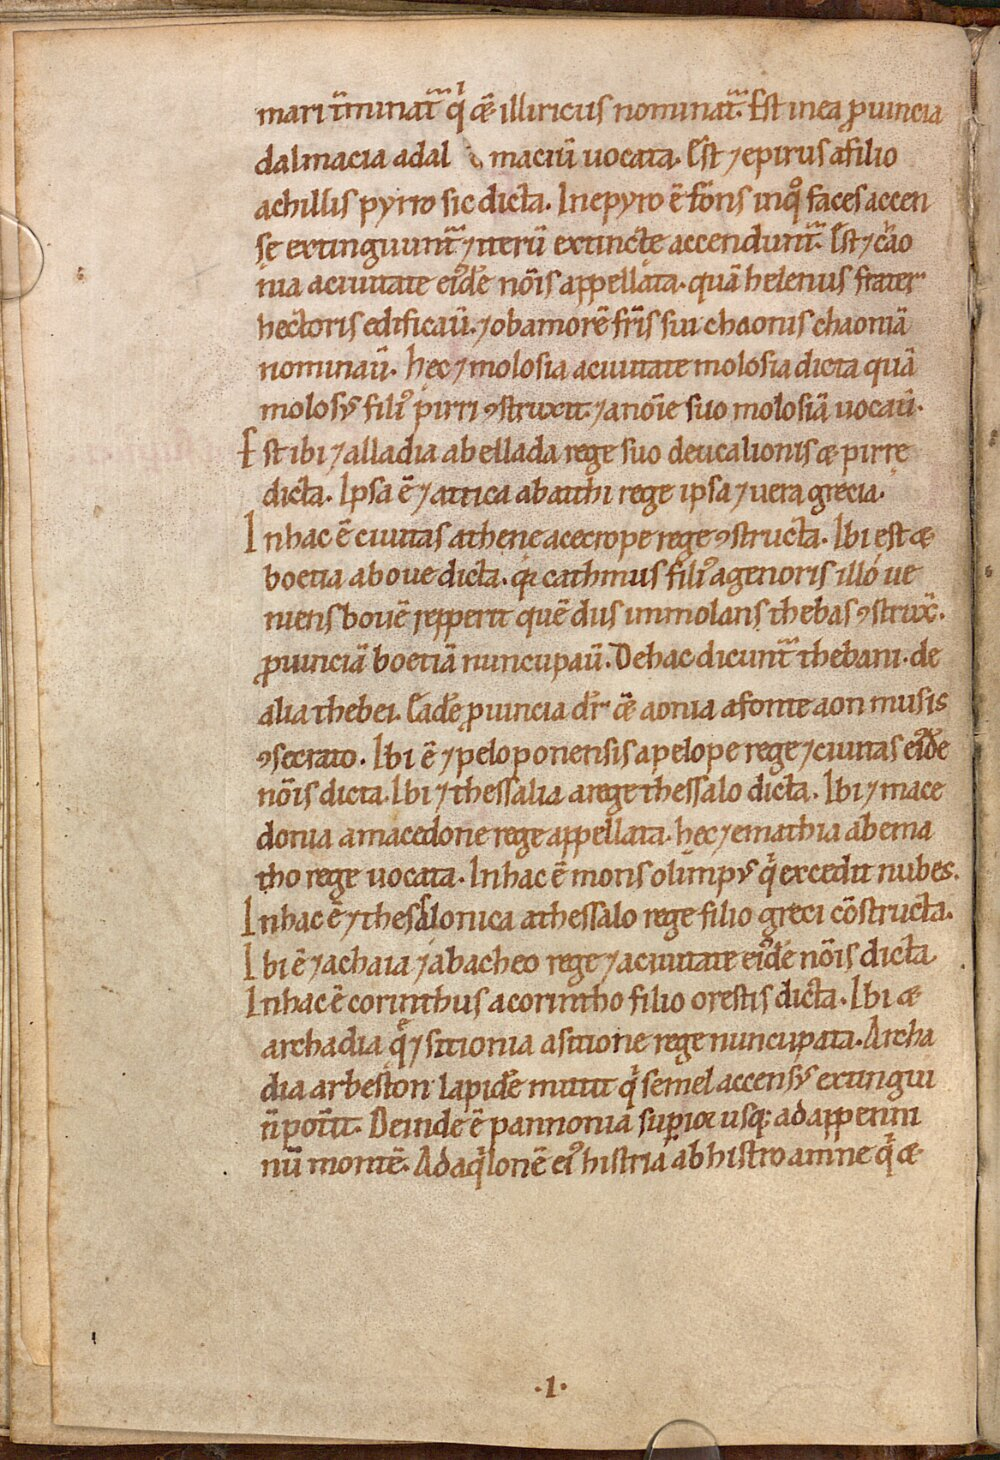 mari t̄minat᷑ q̇ ꝯ̄ illiricus nominat᷑. Est in ea ꝓuincia
dalmacia a dal maciū uocata. Ē̄st ⁊ epirus a filio
achillis pyrro sic dicta. In epyro ē fōns in qͦ faces accen
se extinguunt᷑ ⁊ iterū extincte accendunt᷑. Ēst ⁊ cao
nia a ciuitate eiͥdē nōis appellata. quā helenus frater
hectoris edificaū. ⁊ ob amorē fr̄is sui chaonis chaoniā
nominaū. hec ⁊ molosia a ciuitate molosia dicta quā
molosꝰ filiꝰ pirri ꝯstruxit. ⁊ a noīe suo molosiā uocaū.
Est ibi ⁊ alladia ab ellada rege suo deucalionis æ pirre
dicta. Ipsa ē ⁊ attica ab atthi rege ipsa ⁊ uera grecia.
In hac ē ciuitas athene a cecrope rege ꝯstructa. Ibi est æ
boetia a boue dicta. qͥ cathmus filiꝰ agenoris illo ue
niens bouē repperit quē dus immolans thebas ꝯstrux̄.
ꝓuinciā boetiā nuncupaū. De hac dicunt᷑ thebani. de
alia thebei. Eadē ꝓuincia dr̄ ꝯ̄ aonia a fonte aon musis
ꝯsecrato. Ibi ē ⁊ peloponensis a pelope rege ⁊ ciuitas eiͥdē
nōis dicta. Ibi ⁊ thessalia a rege thessalo dicta. Ibi ⁊ mace
donia a macedone rege appellata. hec ⁊ emathia ab ema
tho rege uocata. In hac ē mons olimpꝰ q̇ excedit nubes.
In hac ē ⁊ thessalonica a thessalo rege filio greci cōstructa.
Ibi ē ⁊ achaia ⁊ ab acheo rege ⁊ a ciuitate eiͥdē nōis dicta.
In hac ē corinthus a corintho filio orestis dicta. Ibi æ
archadia qͤ ⁊ sitionia a sitione rege nuncupata. Archa
dia arbeston lapidē mittit q̇ semel accensꝰ extingui
n̄ pot̄it. Deinde ē pannonia supior usqꝫ ad appenni
nū montē. Ad aq̇lonē eiꝰ histria ab histro amne q̇ æ
.1.